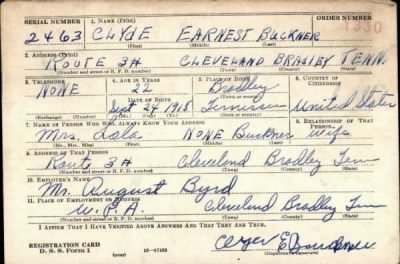 SERIAL NUMBER 1. NAME (Print) ORDER NUMBER
2463 CLYDE EARNEST BUCKNER 1330
(First) (Middle) (Last)
2. ADDRESS (Print)
ROUTE 3# CLEVELAND BRADLEY TENN.
(Number and street or R. F. D. number) (Town) (County) (State)
3. TELEPHONE 4. AGE IN YEARS 5. PLACE OF BIRTH 6. COUNTRY OF CITIZENSHIP
NONE 22 Bradley
(Town or county)
DATE OF BIRTH
Sept 24 1918 Tennessee United States
(Exchange) (Number) (Mo.) (Day) (Yr.) (State or country)
7. NAME OF PERSON WHO WILL ALWAYS KNOW YOUR ADDRESS 8. RELATIONSHIP OF THAT PERSON
Mrs. Lola NONE Buckner Wife
(Mr., Mrs., Miss) (First) (Middle) (Last)
9. ADDRESS OF THAT PERSON
Route 3# Cleveland Bradley Tenn
(Number and street or R. F. D. number) (Town) (County) (State)
10. EMPLOYER'S NAME
Mr. August Byrd
11. PLACE OF EMPLOYMENT OR BUSINESS
W.P.A. Cleveland Bradley Tenn
(Number and street or R. F. D. number) (Town) (County) (State)
I AFFIRM THAT I HAVE VERIFIED ABOVE ANSWERS AND THAT THEY ARE TRUE.
REGISTRATION CARD
D. S. S. Form 1 (over) 16-17105